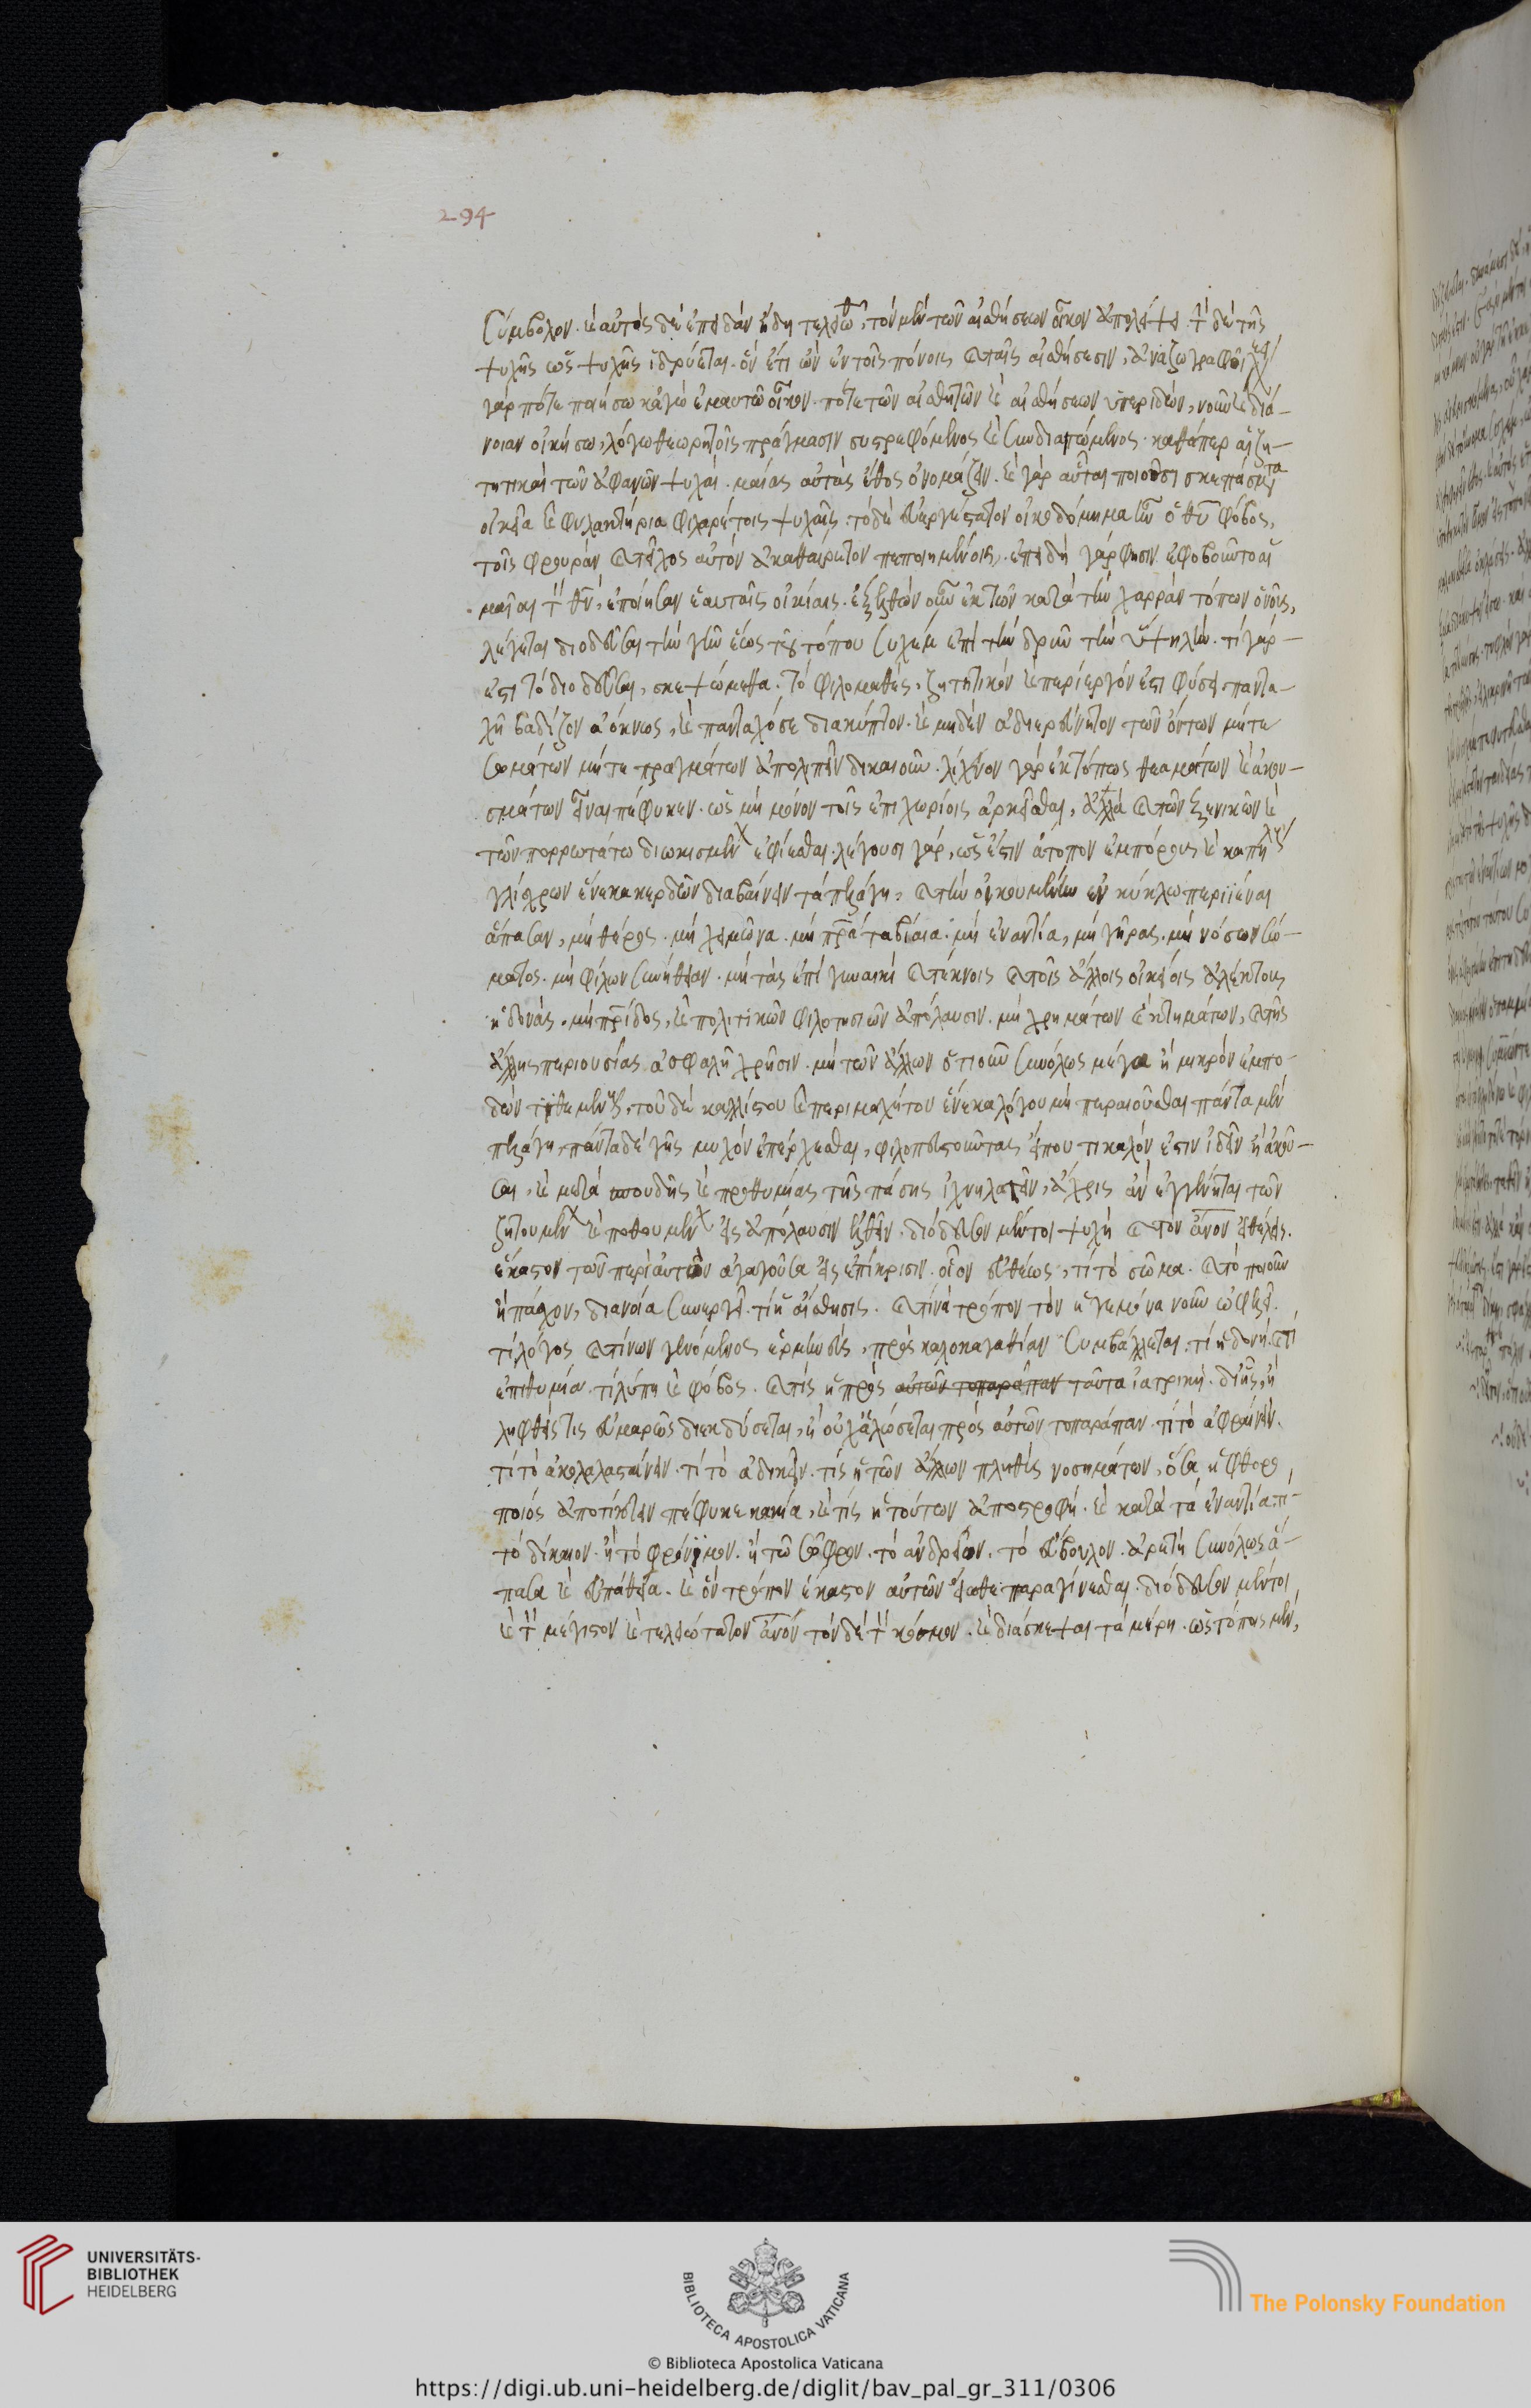 294
σύμβολον. καὶ αὐτὸς δὲ ἐπειδὰν ἤδη τελειωθῆ, τὸν μὲν τῶν αἰσθήσεων οἶκον ἀπολείψει. τὸν δὲ τῆς
ψυχῆς ὡς ψυχῆς ἱδρύεται. ὃν ἔτι ὢν ἐν τοῖς πόνοις καὶ ταῖς αἰσθήσεσιν, ἀναζωγραφεῖ λέγει
γὰρ πότε ποιήσω κἀγὼ ἐμαυτῶ οἶκον. πότε τῶν αἰσθητῶν καὶ αἰσθήσεων ὑπεριδὼν, νοῦν καὶ διά-
νοιαν οἰκήσω, λόγω θεωρητοῖς πράγμασιν συτρεφόμενος καὶ συνδιαιτώμενος. καθάπερ αἱ ζη-
τητικαὶ τῶν ἀφανῶν ψυχαί. μαίας αὐτὰς ἔθος ὀνομάζειν. καὶ γὰρ αὗται ποιοῦσι σκεπάσματα
οἰκεῖα καὶ φυλακτήρια φιλαρέτοις ψυχαῖς. τὸ δὲ εὐεργέστατον οἰκοδόμημα ἦν ὁ θῦ φόβος,
τοῖς φρουρὰν καὶ τεῖχος αὐτὸν ἀκαθαίρετον πεποιημένοις. ἐπειδὴ γάρ φησιν ἐφοβοῦντο αἱ
μαῖαι τὸν θν, ἐποίησαν ἑαυταῖς οἰκίας. ἐξελθὼν οὖν ἐκ τῶν κατὰ τὴν χαρρὰν τόπων ὁ νοῦς,
λέγεται διοδεῦσαι τὴν γῆν ἕως τοῦ τόπου συχὲμ ἐπὶ τὴν δρῦν τὴν ὑψηλήν. τί γάρ
ἐστι τὸ διοδεῦσαι, σκεψώμεθα. τὸ φιλομαθὲς, ζητητικὸν καὶ περίεργόν ἐστι φύσει. παντα-
χῆ βαδίζον ἀόκνως, καὶ πανταχόσε διακύπτον. καὶ μηδὲν ἀδιερεύνητον τῶν ὄντων μήτε
σωμάτων μήτε πραγμάτων ἀπολιπεῖν δικαιοῦν. λίχνον γὰρ ἐκτόπως θεαμάτων καὶ ἀκου-
σμάτων εἶναι πέφυκεν. ὡς μὴ μόνον τοῖς ἐπιχωρίοις ἀρκεῖσθαι, ἀλλὰ καὶ τῶν ξενικῶν καὶ
τῶν πορρωτάτω διωκισμένων ἐφίεσθαι. λέγουσι γὰρ, ὡς ἔστιν ἄτοπον ἐμπόρους καὶ καπήλους
γλίσχρων ἕνεκα κερδῶν διαβαίνειν τὰ πελάγη, καὶ τὴν οἰκουμένην ἐν κύκλω περιϊέναι
ἅπασαν, μὴ θέρος. μὴ χειμῶνα. μὴ πνεύματα βίαια. μὴ ἐναντία, μὴ γῆρας. μὴ νόσων σώ-
ματος. μὴ φίλων συνήθειαν. μὴ τὰς ἐπὶ γυναικὶ καὶ τέκνοις καὶ τοῖς ἄλλοις οἰκείοις ἀλέκτους
ἡδονάς. μὴ πρίδος, καὶ πολιτικῶν φιλοτησιῶν ἀπόλαυσιν. μὴ χρημάτων καὶ κτημάτων, καὶ τῆς
ἄλλης περιουσίας ἀσφαλῆ χρῆσιν. μὴ τῶν ἄλλων ὁτιοῦν συνόλως μέγα ἢ μικρὸν ἐμπο-
δὼν τιθεμένους, τοῦ δὲ καλλίστου καὶ περιμαχήτου ἕνεκα λόγου μὴ περαιοῦσθαι πάντα μὲν
πελάγη, πάντα δὲ γῆς μυχὸν ἐπέρχεσθαι, φιλοπευστοῦντας εἴπου τι καλόν ἐστιν ἰδεῖν ἢ ἀκοῦ-
σαι, καὶ μετὰ σπουδῆς καὶ προθυμίας τῆς πάσης ἰχνηλατεῖν, ἄχρις ἂν ἐγγένηται τῶν
ζητουμένων καὶ ποθουμένων εἰς ἀπόλαυσιν ἐλθεῖν. διόδευσον μέντοι ψυχὴ καὶ τὸν ἄνον εἰ θέλεις.
ἕκαστον τῶν περὶ αὐτὸν ἀγαγοῦσα εἰς ἐπίκρισιν. οἷον εὐθέως, τί τὸ σῶμα. καὶ τὸ ποιοῦν
ἢ πάσχον, διανοία συνεργεῖ. τί ἡ αἴσθησις. καὶ τίνα τρόπον τὸν ἡγεμόνα νοῦν ὠφελεῖ.
τί λόγος καὶ τίνων γενόμενος ἑρμηνεὺς, πρὸς καλοκαγαθίαν συμβάλλεται. τί ἡδονὴ. καὶ τί
ἐπιθυμία. τί λύπη καὶ φόβος. καὶ τίς ἡ πρὸς αὐτῶν τοπαράπαν ταῦτα ἰατρική. δι' ἧς, ἢ
ληφθείς τις εὐμαρῶς διεκδύσεται, ἢ οὐχ ἁλώσεται πρὸς αὐτῶν τοπαράπαν. τί τὸ ἀφραίνειν.
τί τὸ ἀκολαλασταίνειν. τί τὸ ἀδικεῖν. τίς ἡ τῶν ἄλλων πληθὺς νοσημάτων, ὅσα ἡ φθορο
ποιὸς ἀποτίκτειν πέφυκε κακία, καὶ τίς ἡ τούτων ἀποστροφή. καὶ κατὰ τὰ ἐναντία τι
τὸ δίκαιον. ἢ τὸ φρόνιμον. ἢ τὸ σῶφρον. τὸ ἀνδρεῖον. τὸ εὔβουλον. ἀρετὴ συνόλως ἅ-
πασα καὶ εὐπάθεια. καὶ ὃν τρόπον ἕκαστον αὐτῶν εἴωθε παραγίνεσθαι. διόδευσον μέντοι
καὶ τὸν μέγιστον καὶ τελειώτατον ἄνον τόνδε τὸν κόσμον. καὶ διάσκεψαι τὰ μέρη. ὡς τόποις μὲν,
UNIVERSITÄTS-
BIBLIOTHEK
HEIDELBERG
BIBLIOTECA APOSTOLICA VATICANA
The Polonsky Foundation
© Biblioteca Apostolica Vaticana
https://digi.ub.uni-heidelberg.de/diglit/bav_pal_gr_311/0306